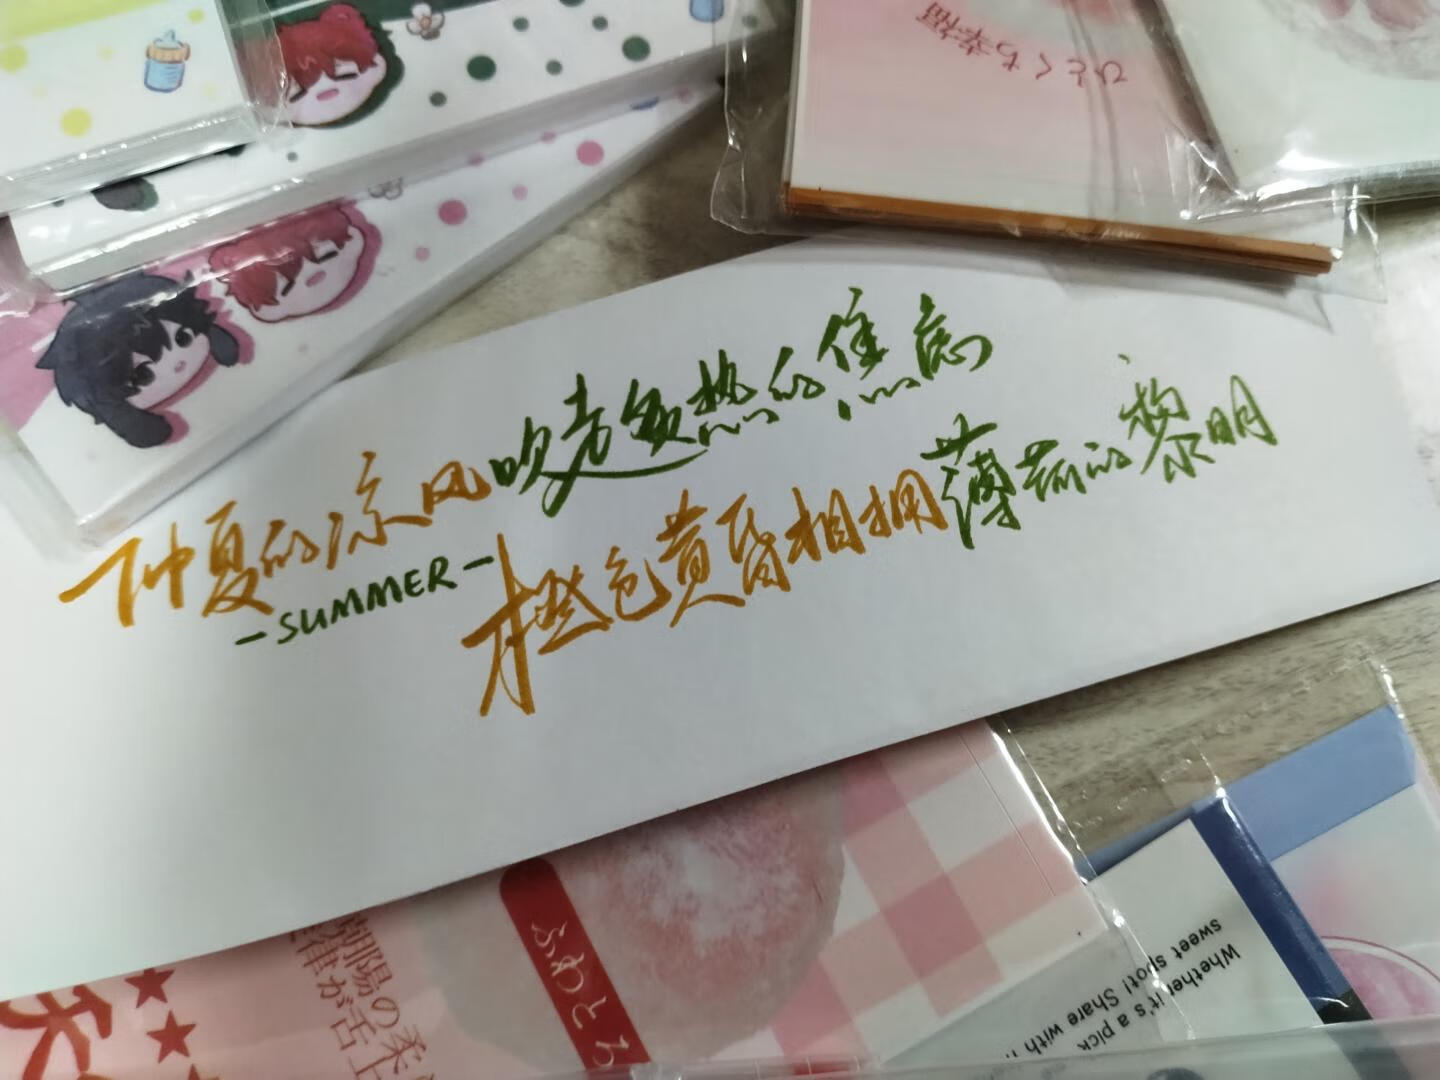 ひとくち幸福
仲夏的凉风吹走炙热的焦虑
-SUMMER-
橙色黄昏相拥薄荷的黎明
朝陽の柔
が舌
ふわとろ
Whether it's a pick
sweet spot! Share with